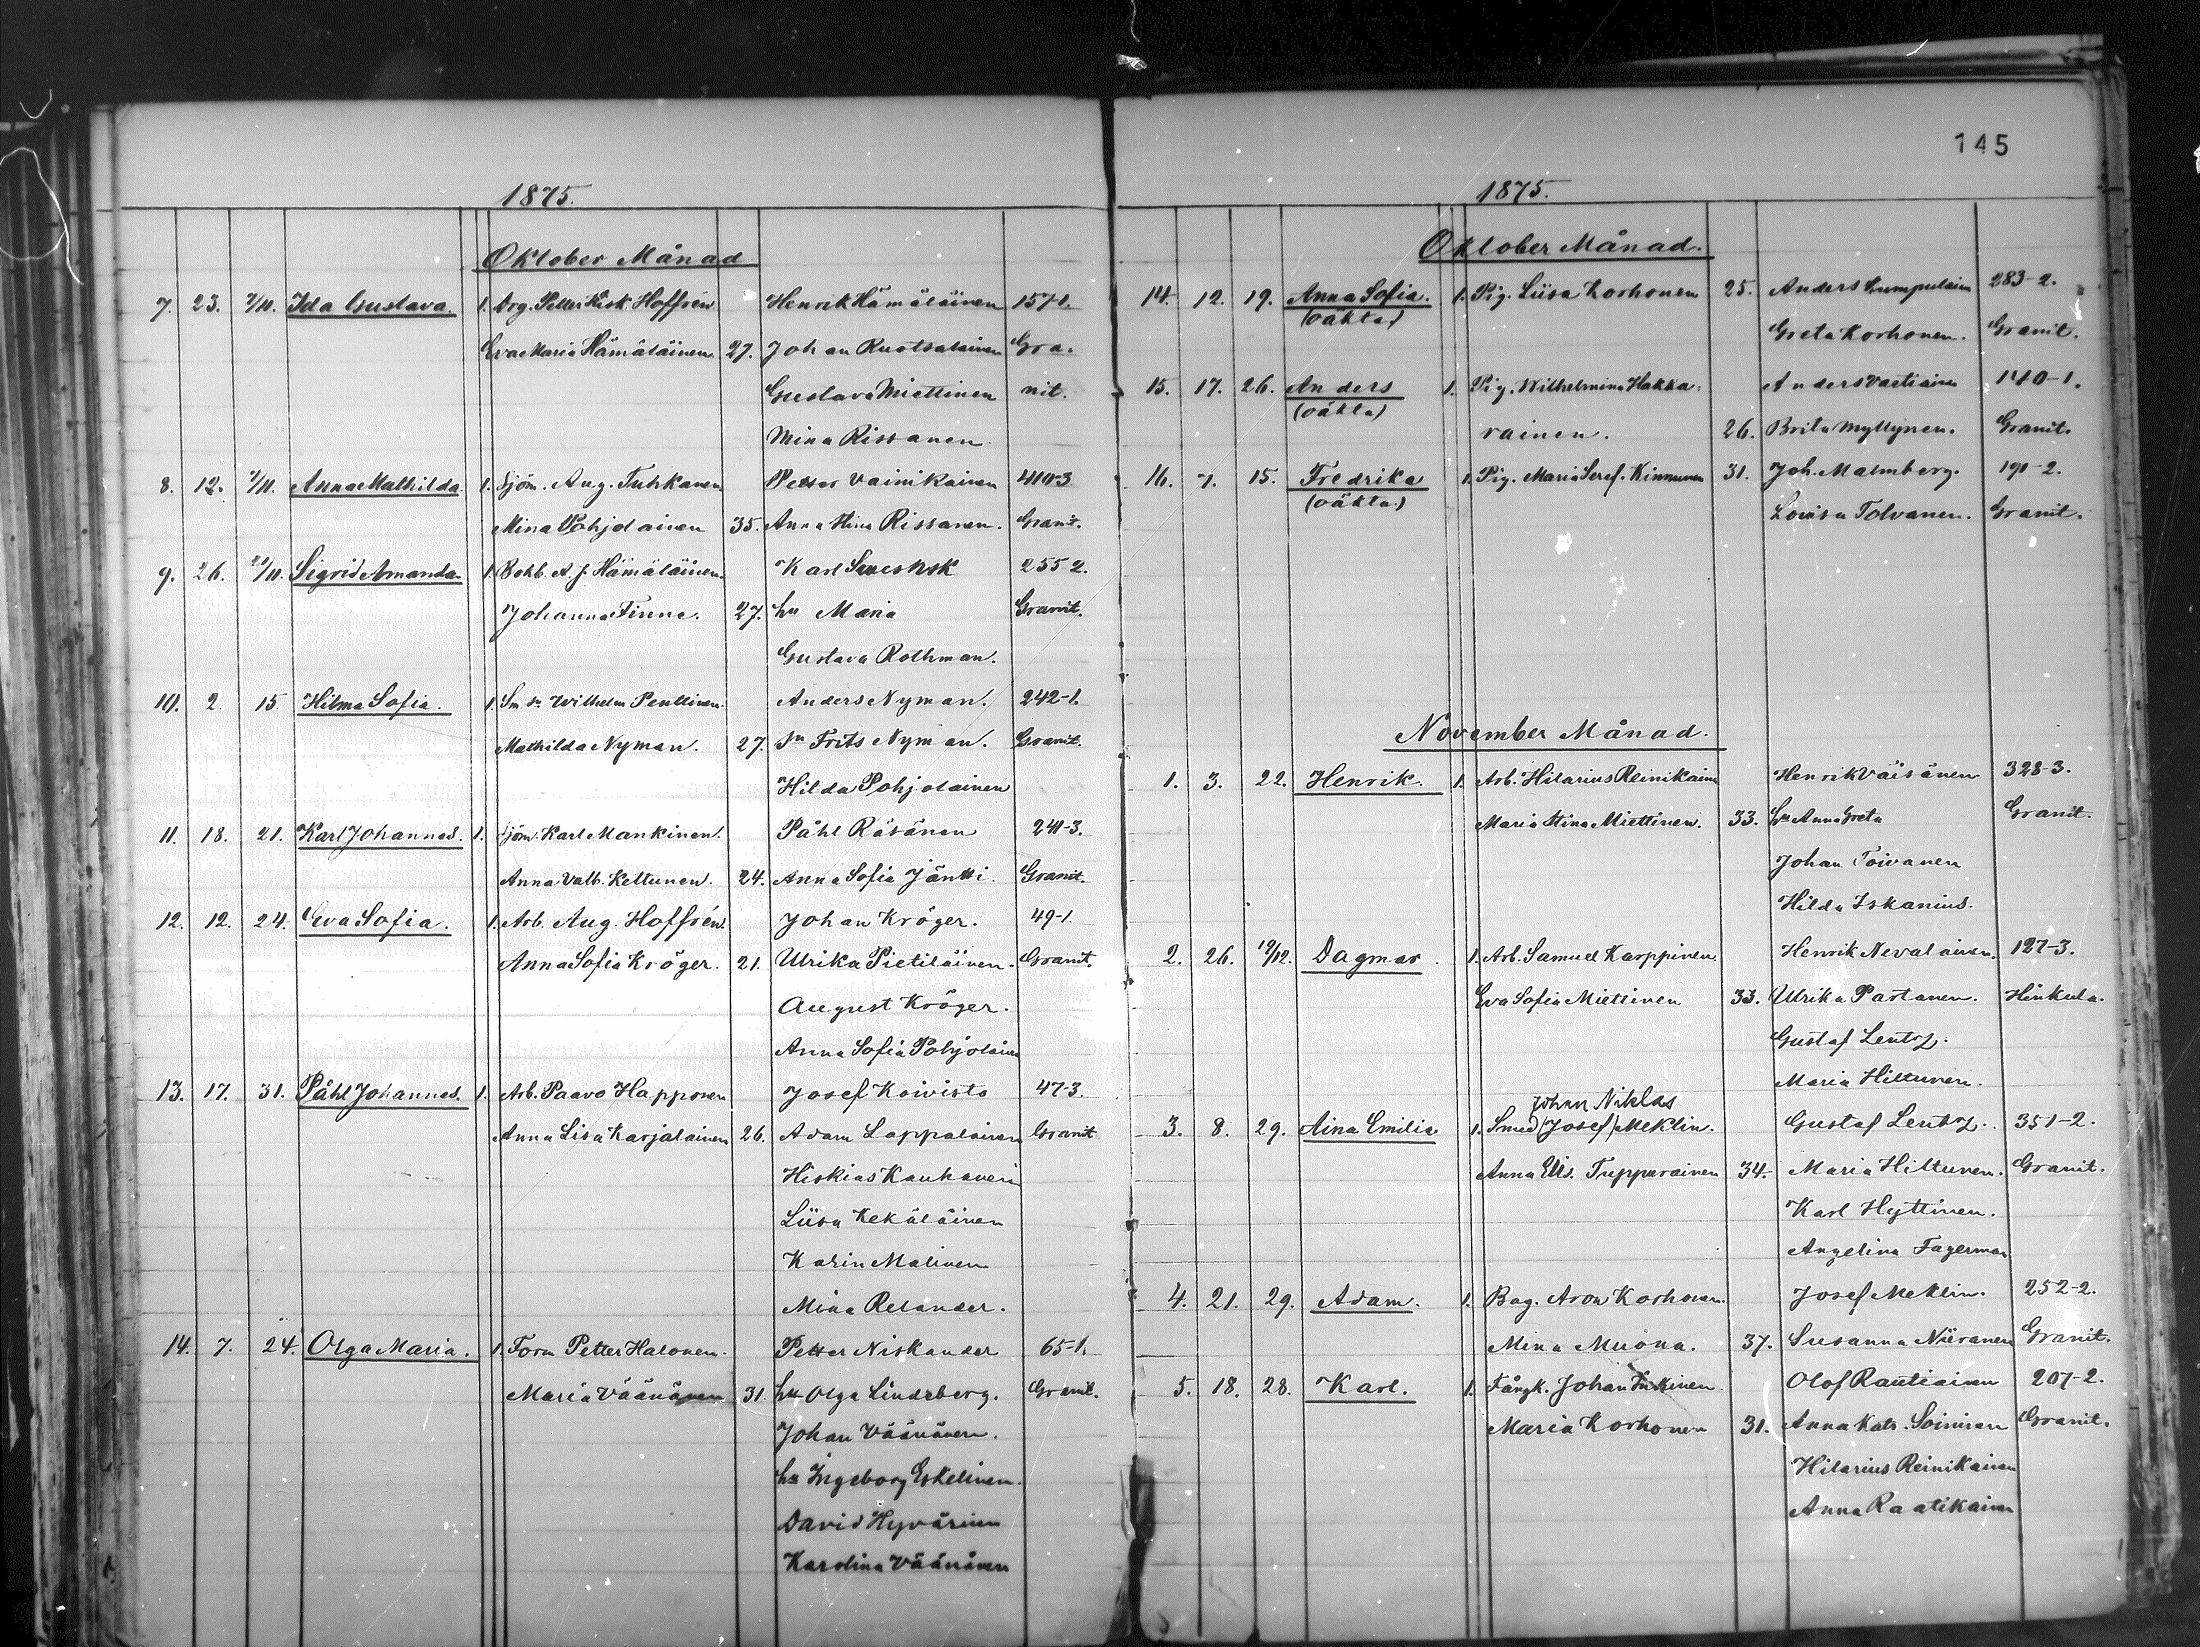 145
1875.
Oktober Månad
7. 23. 7/11. Ida Gustava. 1. Petter Hoffrén Henrik Hämäläinen 157-1.
Eva Maria Hämäläinen. 27. Johan Ruotsalainen Gra-
Gustava Miettinen nit.
Mina Rissanen.
8. 12. 7/11. Anna Mathilda 1. Sjöm. Aug. Tuhkanen Petter Vainikainen 410-3
Mina Pohjolainen 35. Anna Stina Rissanen. Granit.
9. 26. 21/11. Sigrid Amanda. 1. Bokb. A. J. Hämäläinen. Karl 255-2.
Johanna Finne. 27. hu Maria Granit.
Gustava Rothman.
10. 2 15. Hilma Sofia. 1. Wilhelm Penttinen. Anders Nyman. 242-1.
Mathilda Nyman. 27. Frits Nyman. Granit.
Hilda Pohjolainen
11. 18. 21. Karl Johannes. 1. Sjöm. Karl Mankinen. Påhl Räsänen 241-3.
Anna Valb. Kettunen. 24. Anna Sofia Jäntti. Granit.
12. 12. 24. Eva Sofia. 1. Arb. Aug. Hoffrén Johan Kröger. 49-1.
Anna Sofia Kröger. 21. Ulrika Pietiläinen. Granit.
August Kröger.
Anna Sofia Pohjolainen
13. 17. 31. Påhl Johannes. 1. Arb. Paavo Happonen Josef Koivisto 47-3.
Anna Lisa Karjalainen 26. Adam Lappalainen Granit
Hiskias Kauhanen
Liisa Kekäläinen
Karin Malinen
Mina Relander.
14. 7. 24. Olga Maria. 1. Form Petter Halonen. Petter Niskander 65-1.
Maria Väänänen 31. hu Olga Lindberg. Granit.
Johan Väänänen.
hu Ingeborg Eskelinen.
David Hyvärinen
Karolina Väänänen
1875.
Oktober Månad.
14. 12. 19. Anna Sofia. 1. Pig. Liisa Korhonen 25. Anders Lumpulain 283-2.
(oäkta) Greta Korhonen. Granit.
15. 17. 26. Anders 1. Pig. Wilhelmina Hakka- Anders Vartiainen 140-1.
(oäkta) rainen. 26. Brita Myllynen. Granit.
16. 7. 15. Fredrika 1. Pig. Maria Seref. Kinnunen 31. Joh. Malmberg. 190-2.
(oäkta) Lovisa Tolvanen. Granit.
November Månad.
1. 3. 22. Henrik. 1. Arb. Hilarius Reinikainen Henrik Väisänen 328-3.
Maria Stina Miettinen. 33. hu Anna Greta Granit.
Johan Toivanen
Hilda Iskanius.
2. 26. 19/12. Dagmar. 1. Arb. Samuel Karppinen Henrik Nevalainen. 127-3.
Eva Sofia Miettinen 33. Ulrika Partanen. Hinkula.
Gustaf Lentz.
Maria Hiltunen.
Johan Niklas
3. 8. 29. Aina Emilia 1. Smed (Josef) Meklin. Gustaf Lentz. 351-2.
Anna Elis. Tuppurainen 34. Maria Hiltunen. Granit.
Karl Hyttinen.
Angelina Fagerman
4. 21. 29. Adam. 1. Bag. Aron Korhonen. Josef Meklin. 252-2.
Mina Muona. 37. Susanna Niiranen Granit.
5. 18. 28. Karl. 1. Fångk. Johan Olof Rautiainen 207-2.
Maria Korhonen 31. Anna Katr. Soininen Granit.
Hilarius Reinikainen
Anna Raatikainen